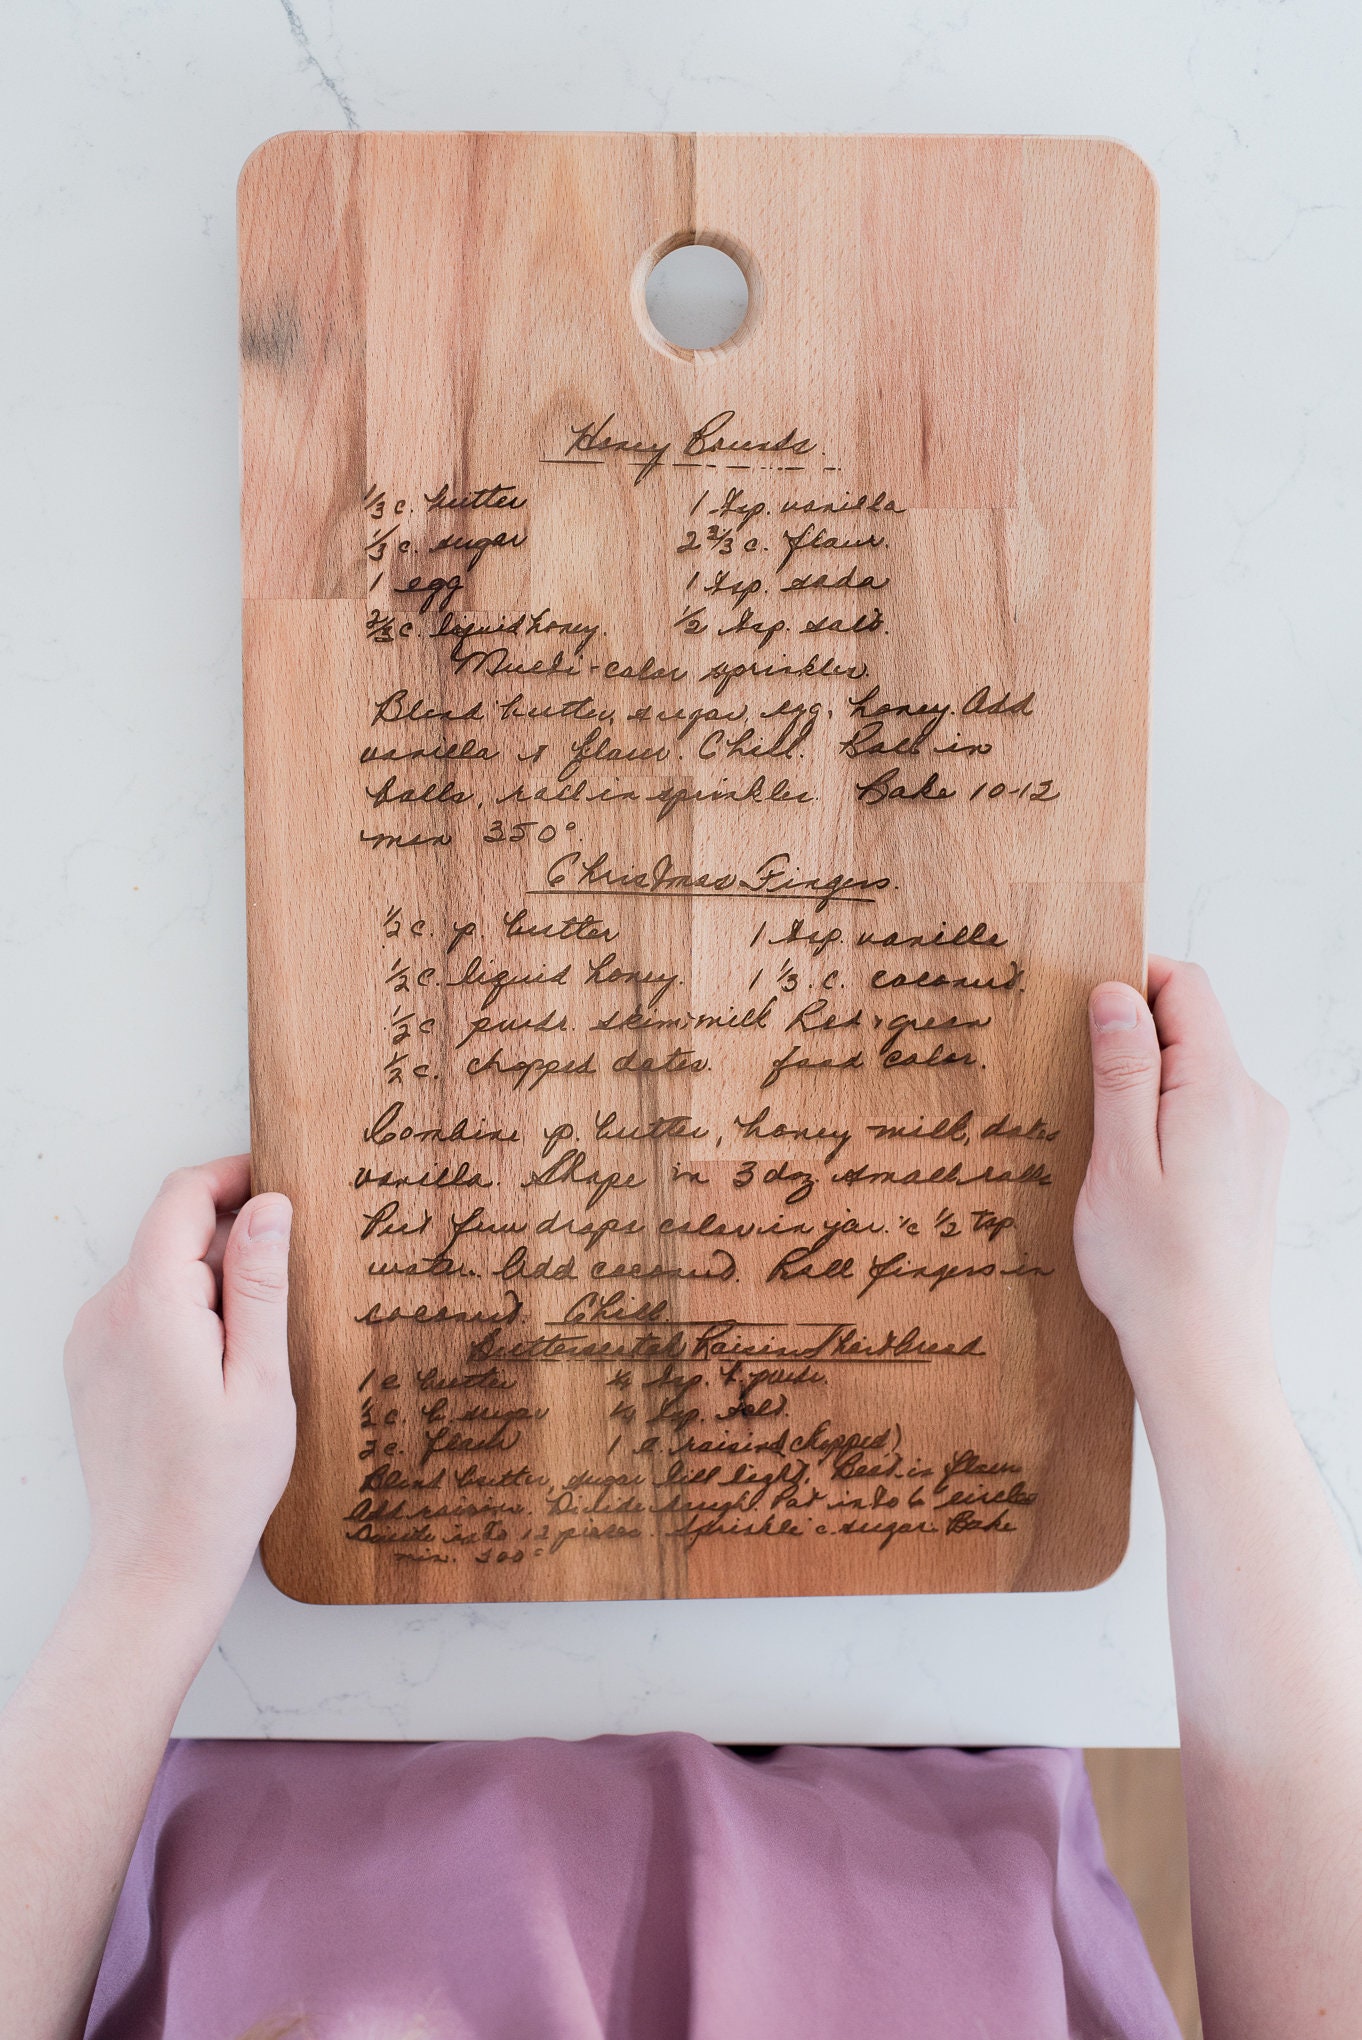 Honey Rounds.
⅓ c. butter 1 tsp. vanilla
⅓ c. sugar 2⅔ c. flour.
1 egg 1 tsp. soda
⅔ c. liquid honey. ½ tsp. salt.
Multi-color sprinkles.
Blend butter, sugar, egg, honey. Add
vanilla & flour. Chill. Roll in
balls, roll in sprinkles. Bake 10-12
min 350°.
Christmas Fingers.
½ c. p. butter 1 tsp. vanilla
½ c. liquid honey. 1⅓ c. coconut.
½ c powdr. skim milk Red & green
½ c. chopped dates. food color.
Combine p. butter, honey milk, dates
vanilla. Shape in 3 doz. small rolls
Put few drops color in jar. c ½ tsp
water. Add coconut. Roll fingers in
coconut. Chill.
Butterscotch Raisin Shortbread
1 c butter ¼ tsp. b. powdr.
½ c. b. sugar ¼ tsp. salt.
2 c. flour 1 c. raisins (chopped)
Blend butter, sugar till light. Beat in flour
Add raisins. Divide dough. Pat into 6" circles
Divide into 12 pieces. Sprinkle c sugar. Bake
min. 300°